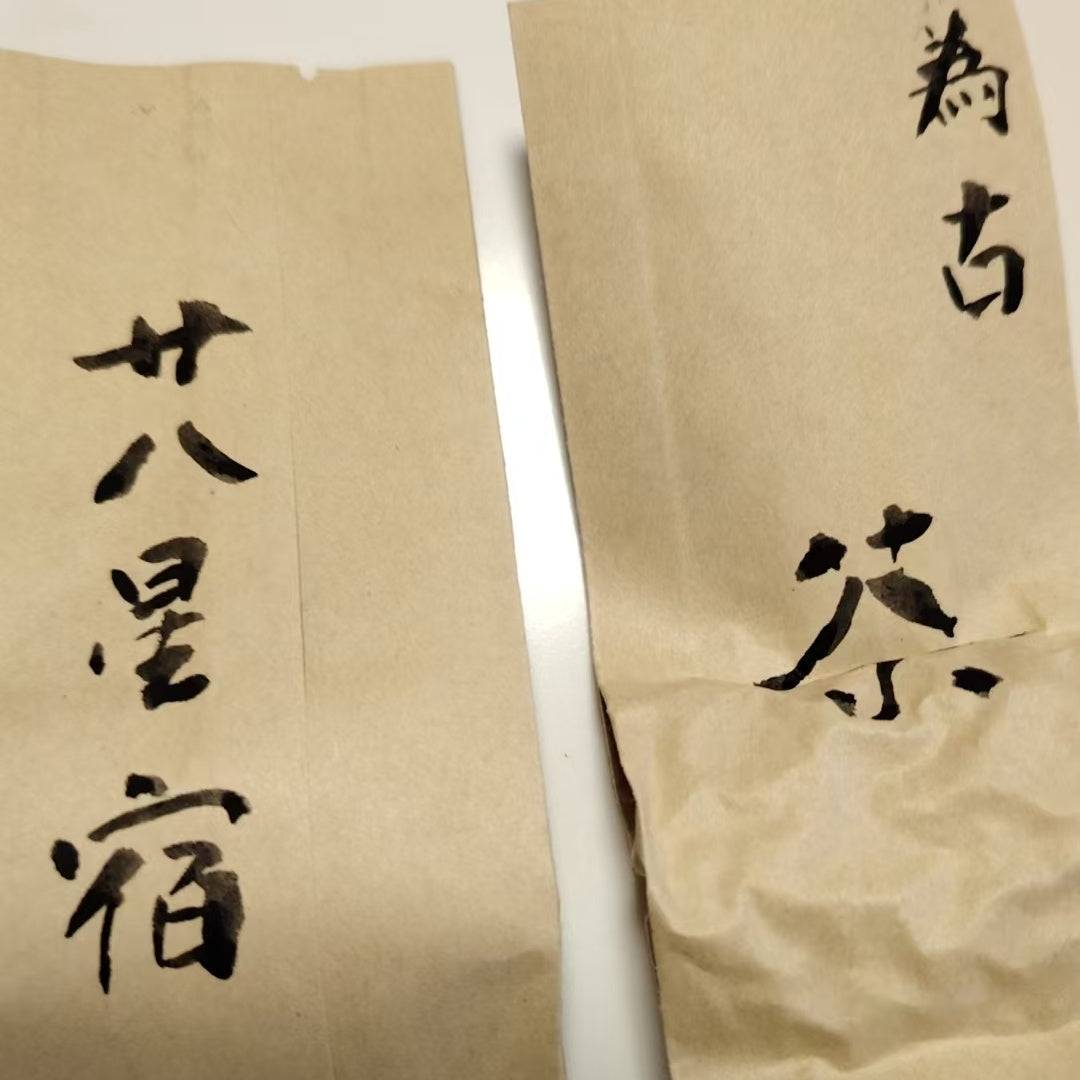 為古
茶
廿八星宿